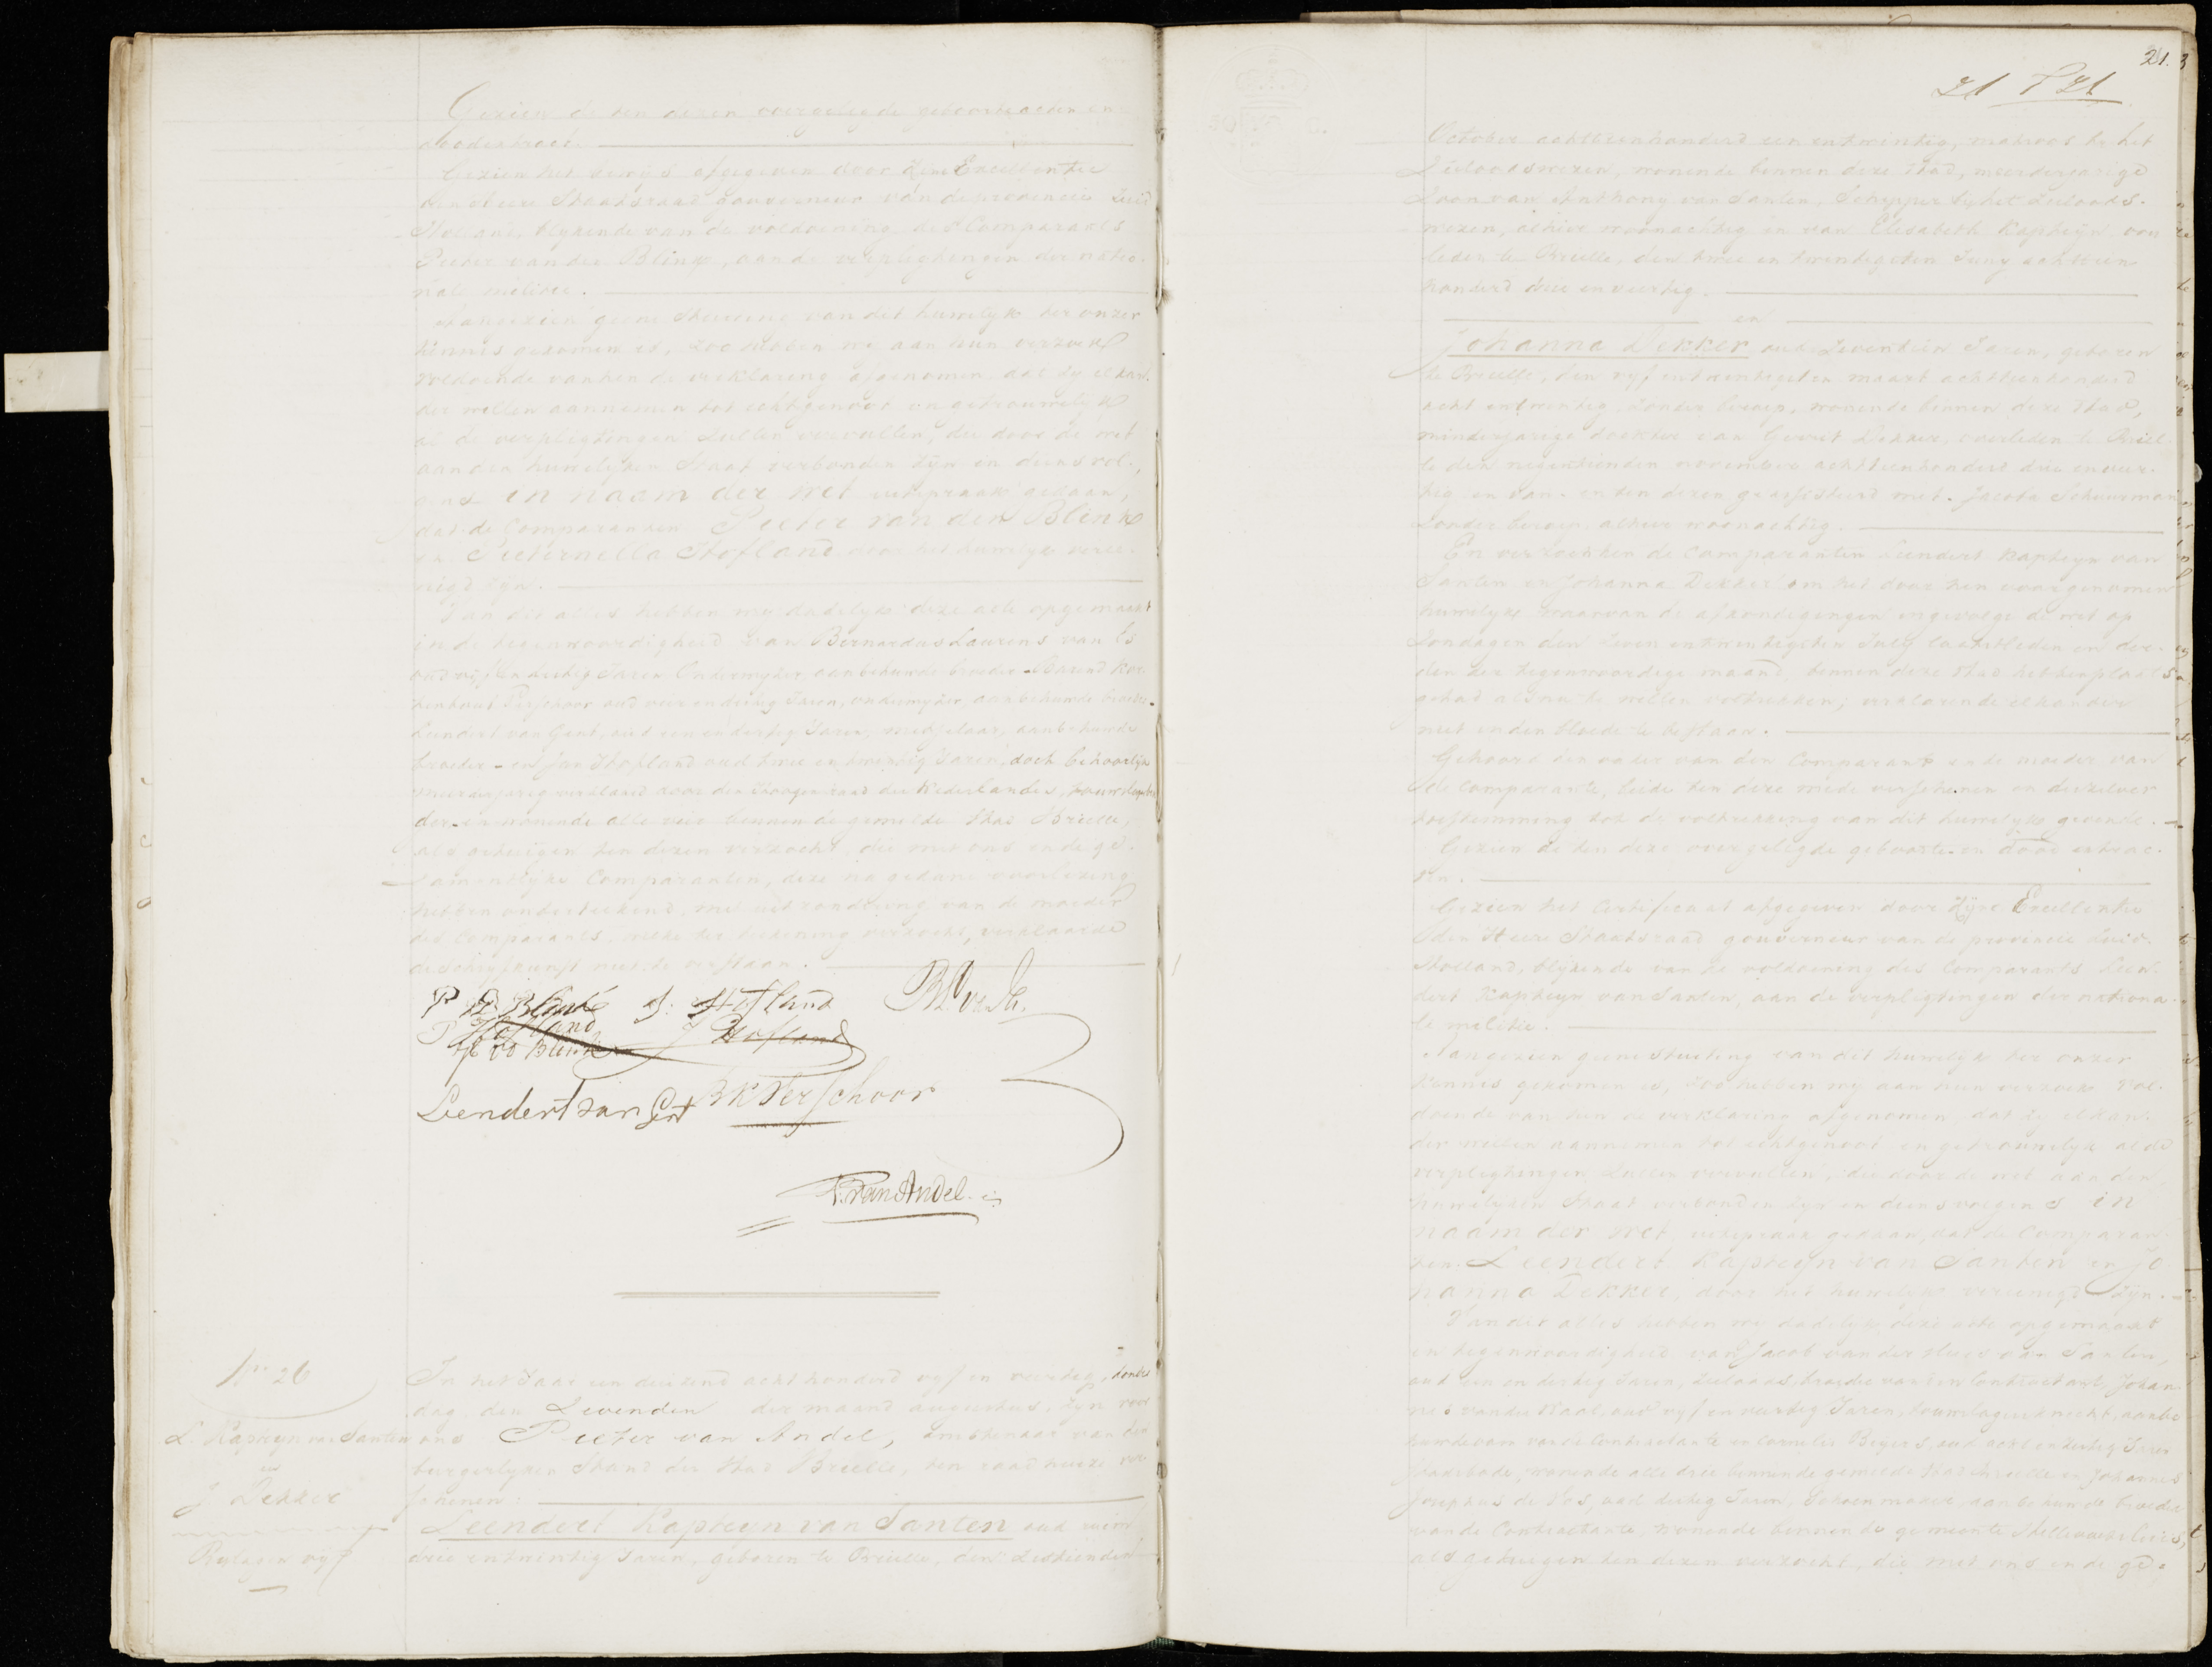 Gezien de ten dezen overgelegde geboorteacten en
doodextract.
Gezien het bewijs afgegeven door Zijne Excellentie
den Heere Staatsraad Gouverneur van de provincie Zuid
Holland, blijkende van de voldoening des Comparants
Pieter van den Blink, aan de verpligtingen der natio-
nale melitie.
Aangezien geene stuiting van dit huwelijk ter onzer
kennis gekomen is, zoo hebben wij aan hun verzoek
voldoende van hen de verklaring afgenomen dat zij elkan-
der willen aannemen tot echtgenoot en getrouwelijk
al de verpligtingen zullen vervullen, die door de wet
aan den huwelijken Staat verbonden zijn en diensvol-
gens in naam der wet uitspraak gedaan,
dat de Comparanten Pieter van den Blink
en Pieternella Hofland door het huwelijk veree-
nigd zijn.
Van dit alles hebben wij dadelijk deze acte opgemaakt
in de tegenwoordigheid van Bernardus Laurens van Es
oud vijf en dertig Jaren Onderwijzer, aanbehuwde broeder - Barend Koe-
kenhout Verschoor oud vier en dertig Jaren, onderwijzer, aanbehuwde broeder -
Leendert van Gent, oud een en dertig Jaren, aanbehuwde
broeder - en Jan Hofland oud twee en twintig Jaren, doch behoorlijk
meerderjarig verklaard door den Hoogen raad der Nederlanden,
der - en wonende alle vier binnen de gemelde Stad Brielle,
als getuigen ten dezen verzocht, die met ons en de ge-
samentlijke Comparanten, deze na gedane voorlezing
hebben onderteekend, met uitzondering van de moeder
des Comparants, welke ter teekening verzocht, verklaarde
de schrijfkunst niet te verstaan.
P VD Blink J: Hofland BL v. Es.
P Hofland J Hofland
vd Blink
Leendert van Gent BK Verschoor
P. van Andel.
No 26
L. Kapteyn van Santen
en
J Dekker
Bylagen vijf
In het Jaar een duizend acht honderd vijf en veertig, donder
dag den Zevenden der maand augustus, zijn voor
ons Pieter van Andel, ambtenaar van den
burgerlijken Stand der Stad Brielle, ten raadhuize ver-
schenen:
Leendert Kapteyn van Santen oud ruim
drie en twintig Jaren, geboren te Brielle, den zestienden
21.
21 21
October achttienhonderd een en twintig, matroos bij het
Zeeloodswezen, wonende binnen deze Stad, meerderjarige
Zoon van Anthony van Santen, Schipper bij het Zeeloods-
wezen, alhier woonachtig en van Elisabeth Kapteyn over-
leden te Brielle, den twee en twintigsten Juny achttien
honderd drie en veertig.
en
Johanna Dekker oud Zeventien Jaren, geboren
te Brielle, den vijf en twintigsten maart achttienhonderd
acht en twintig, zonder beroep, wonende binnen deze Stad,
minderjarige dochter van Gerrit Dekker, overleden te Briel-
le den negentienden november achttienhonderd drie en veer-
tig en van - en ten dezen geassisteerd met - Jacoba Schuurman
zonder beroep, alhier woonachtig.
En verzochten de Comparanten Leendert Kapteyn van
Santen en Johanna Dekker om het door hen voorgenomen
huwelijk, waarvan de afkondigingen ingevolge de wet op
Zondagen den Zeven en twintigsten July laatstleden en der-
den der tegenwoordige maand, binnen deze Stad hebben plaats
gehad alsnu te willen voltrekken, verklarende elkander
niet in den bloede te bestaan.
Gehoord den vader van den Comparant en de moeder van
de Comparante, beide ten deze mede verschenen en derzelver
toestemming tot de voltrekking van dit huwelijk gevende.
Gezien de ten deze overgelegde geboorte en dood extrac-
ten.
Gezien het Certificaat afgegeven door Zijne Excellentie
den Heere Staatsraad gouverneur van de provincie Zuid-
Holland, blijkende van de voldoening des Comparants Leen-
dert Kapteyn van Santen, aan de verpligtingen der nationa-
le melitie
Aangezien geene stuiting van dit huwelijk ter onzer
kennis gekomen is, zoo hebben wij aan hun verzoek vol-
doende van hen de verklaring afgenomen dat zij elkan-
der willen aannemen tot echtgenoot en getrouwelijk al de
verpligtingen zullen vervullen, die door de wet aan den
huwelijken Staat verbonden zijn en diensvolgens in
naam der wet, uitspraak gedaan, dat de Comparan-
ten Leendert Kapteyn van Santen en Jo
hanna Dekker, door het huwelijk vereenigd zijn.
Van dit alles hebben wij dadelijk deze acte opgemaakt
in tegenwoordigheid van Jacob van der Sluis van Santen,
oud een en dertig Jaren, Zeeloods, broeder van den Contractant, Johan-
nes van der Waal, oud vijf en veertig Jaren, aanbe
huwde oom van de Contractante en Cornelis Beyers, oud acht en dertig Jaren
stadsbode, wonende alle drie binnen de gemelde Stad Brielle en Johannes
Josephus de Vos, oud dertig Jaren, Schoenmaker, aanbehuwde broeder
van de Contractante, wonende binnen de gemeente Hellevoetsluis,
als getuigen ten dezen verzocht, die met ons en de ge-